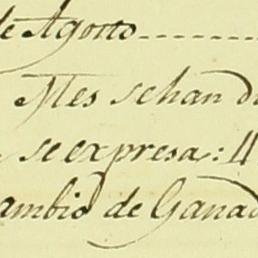 de Agosto
Mes sehan d
se expresa: 4
ambio de Ganad